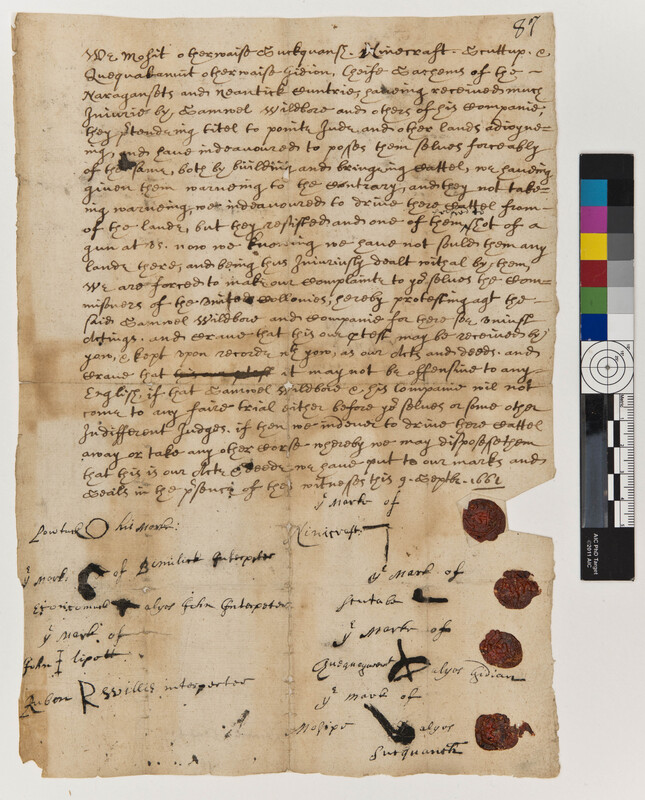 87
We Mosüt otherwaise Suckquansh. Ninecraft. Scuttup. &
Quequakanut otherwaise Gidion, Cheife Sachems of the
Naragansets and Neantick Cuntries haveing received much
Iniurie by Samwel Wildbore and others of his Companie,
they p'tending titel to pointe Jude and other lands adioyne-
ing, and have indeavoured to posses them selves forceably
of the same, both by building and bringing Cattel, we haveing
given them warneing to the Contrary, and they not take-
ing warneing, we indeavoured to drive there Cattel from
of the lande, but they resisted and one of them shot of a
gun at us. now we knowing we have not sould them any
lande there, and being thus Iniuriusly dealt withal by them,
We are forced to make our Complainte to yor selves the Com-
misoners of the united Collonies, hereby protesting agt the
said Samwel Wildbore and Companie for there soe uniust
Actings. and Crave that this our p'test may be received by
yow, & kept upon recorde wth yow, as our Acts and deeds. and
Crave that it may not be offensive to any
English. if that Samwel Wildbore & his Companie wil not
come to any faire trial either before yor selves or some other
Indifferent Judges. if then we indever to drive there Cattel
away or take any other Corse whereby we may disposese them
that this is our Acte & deede we have put to our marks and
Seals in the p'sence of thes witneses this 9. Septbr. 1662
ye Mark of
his Mark:
Ninicraft
ye Mark of Interpeter
ye Mark of
alyes John Interpeter
Scutabe
ye Mark of
ye Mark of
John lipott
Quequegunent alyes Gidian
Ruben R Willis interpecter
ye mark of
Mosipe alyes
Sucquansh
AIC PhD Target
©2011 AIC